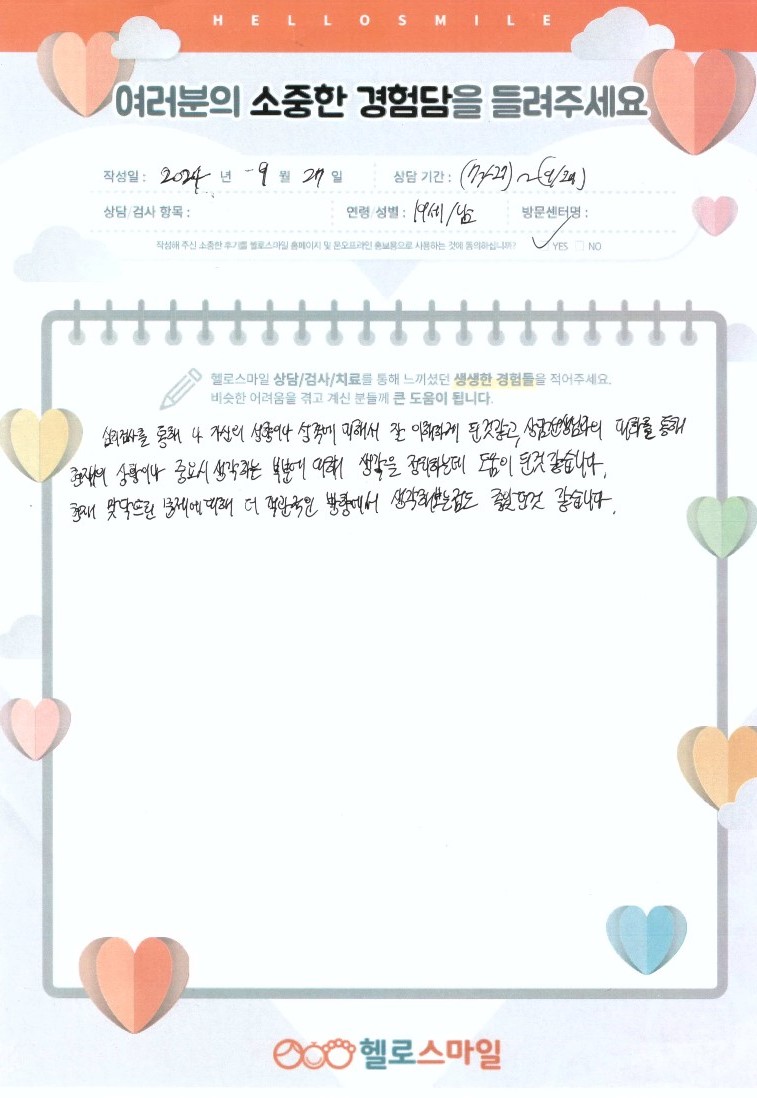 HELLOSMILE
여러분의 소중한 경험담을 들려주세요
작성일 : 2024 년 9 월 27 일 상담 기간 :
상담/검사 항목 : 연령/성별 : 19세/남 방문센터명 :
작성해 주신 소중한 후기를 헬로스마일 홈페이지 및 온오프라인 홍보용으로 사용하는 것에 동의하십니까? YES NO
헬로스마일 상담/검사/치료를 통해 느끼셨던 생생한 경험들을 적어주세요.
비슷한 어려움을 겪고 계신 분들께 큰 도움이 됩니다.
심리검사를 통해 나 자신의 성향이나 성격에 대해서 잘 이해하게 된것같고, 상담선생님과의 대화를 통해
현재의 상황이나 중요시 생각하는 부분에 대해 생각을 정리하는데 도움이 된것 같습니다.
현재 맞닥뜨린 문제에 대해 더 객관적인 방향에서 생각해보는점도 좋았던것 같습니다.
헬로스마일